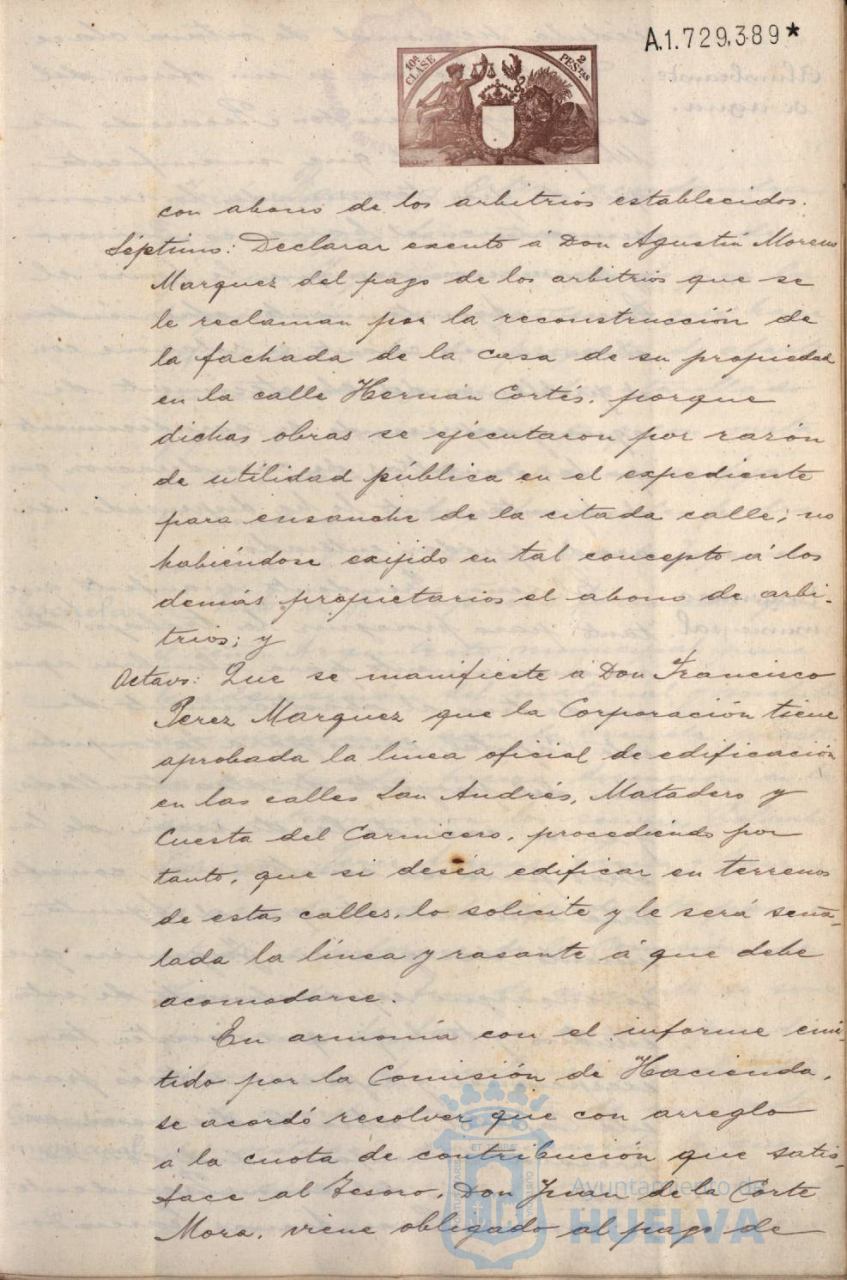 A.1.729,389*
10ª CLASE
2 PESETAS
con abono de los arbitrios establecidos.
Séptimo: Declarar exento á Don Agustín Moreno
Marquez del pago de los arbitrios que se
le reclaman por la reconstrucción de
la fachada de la casa de su propiedad
en la calle Hernán Cortés, porque
dichas obras se ejecutaron por razón
de utilidad pública en el expediente
para ensanche de la citada calle; no
habiéndose exijido en tal concepto á los
demás propietarios el abono de arbi-
trios; y
Octavo: Que se manifieste á Don Francisco
Perez Marquez que la Corporación tiene
aprobada la línea oficial de edificación
en las calles San Andrés, Matadero y
Cuesta del Carnicero, procediendo por
tanto, que si desea edificar en terrenos
de estas calles, lo solicite y le será seña-
lada la línea y rasante á que debe
acomodarse.
En armonía con el informe emi-
tido por la Comisión de Hacienda,
se acordó resolver que con arreglo
á la cuota de contribución que satis-
face al Tesoro, Don Juan de la Corte
Mora, viene obligado al pago de
Ayuntamiento de
HUELVA